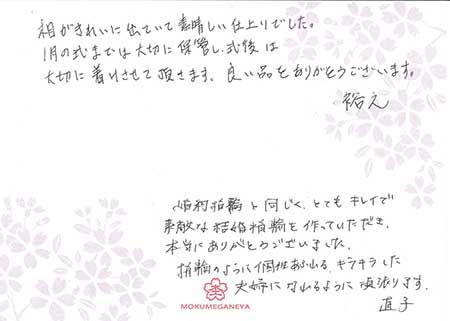 相がきれいに出ていて素晴しい仕上りでした。
1月の式までは大切に保管し、式後は
大切に着けさせて頂きます。良い品をありがとうございます。
裕之
婚約指輪と同じく、とてもキレイで
素敵な結婚指輪を作っていただき、
本当にありがとうございました。
指輪のように個性あふれる、キラキラした
夫婦になれるように頑張ります。
直子
MOKUMEGANEYA